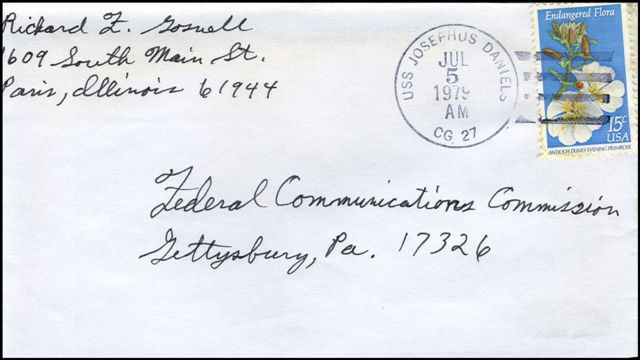 Richard F. Gosnell
1609 South Main St.
Paris, Illinois 61944
USS JOSEPHUS DANIELS
JUL
5
1979
AM
CG 27
Endangered Flora
15c
USA
ANTIOCH DUNES EVENING PRIMROSE
Federal Communications Commission
Gettysburg, Pa. 17326